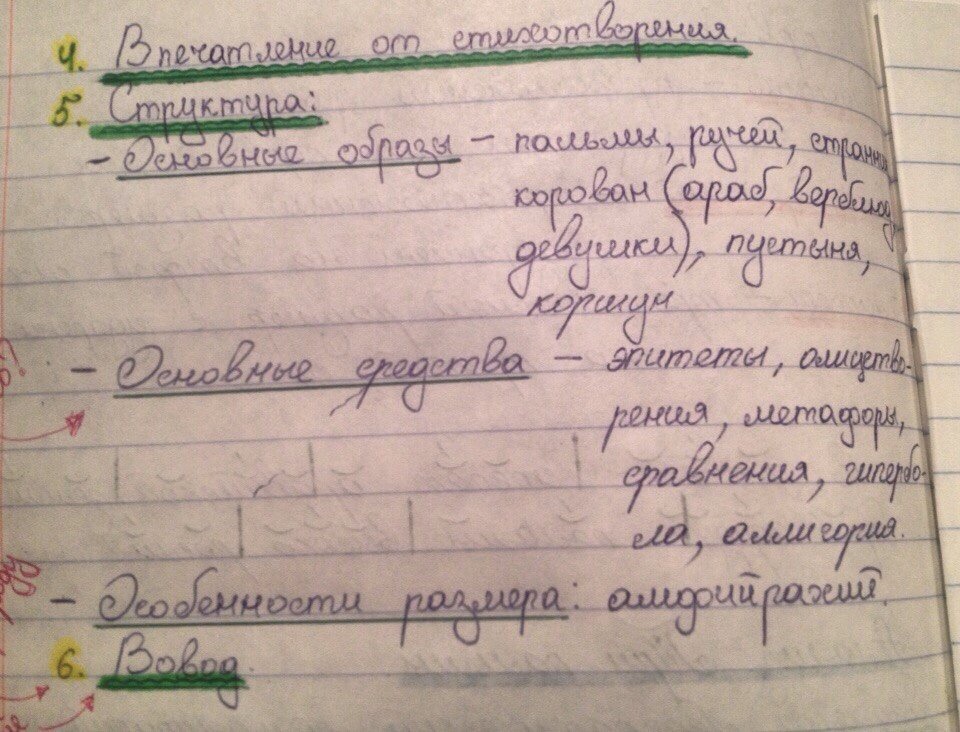 4. Впечатление от стихотворения.
5. Структура:
- Основные образы - пальмы, ручей, странник
корован (араб, верблюд,
девушки), пустыня,
коршун
- Основные средства - эпитеты, олицетво-
рения, метафоры,
сравнения, гипербо-
ла, аллигория.
- Особенности размера: амфойрахий.
6. Вовод.